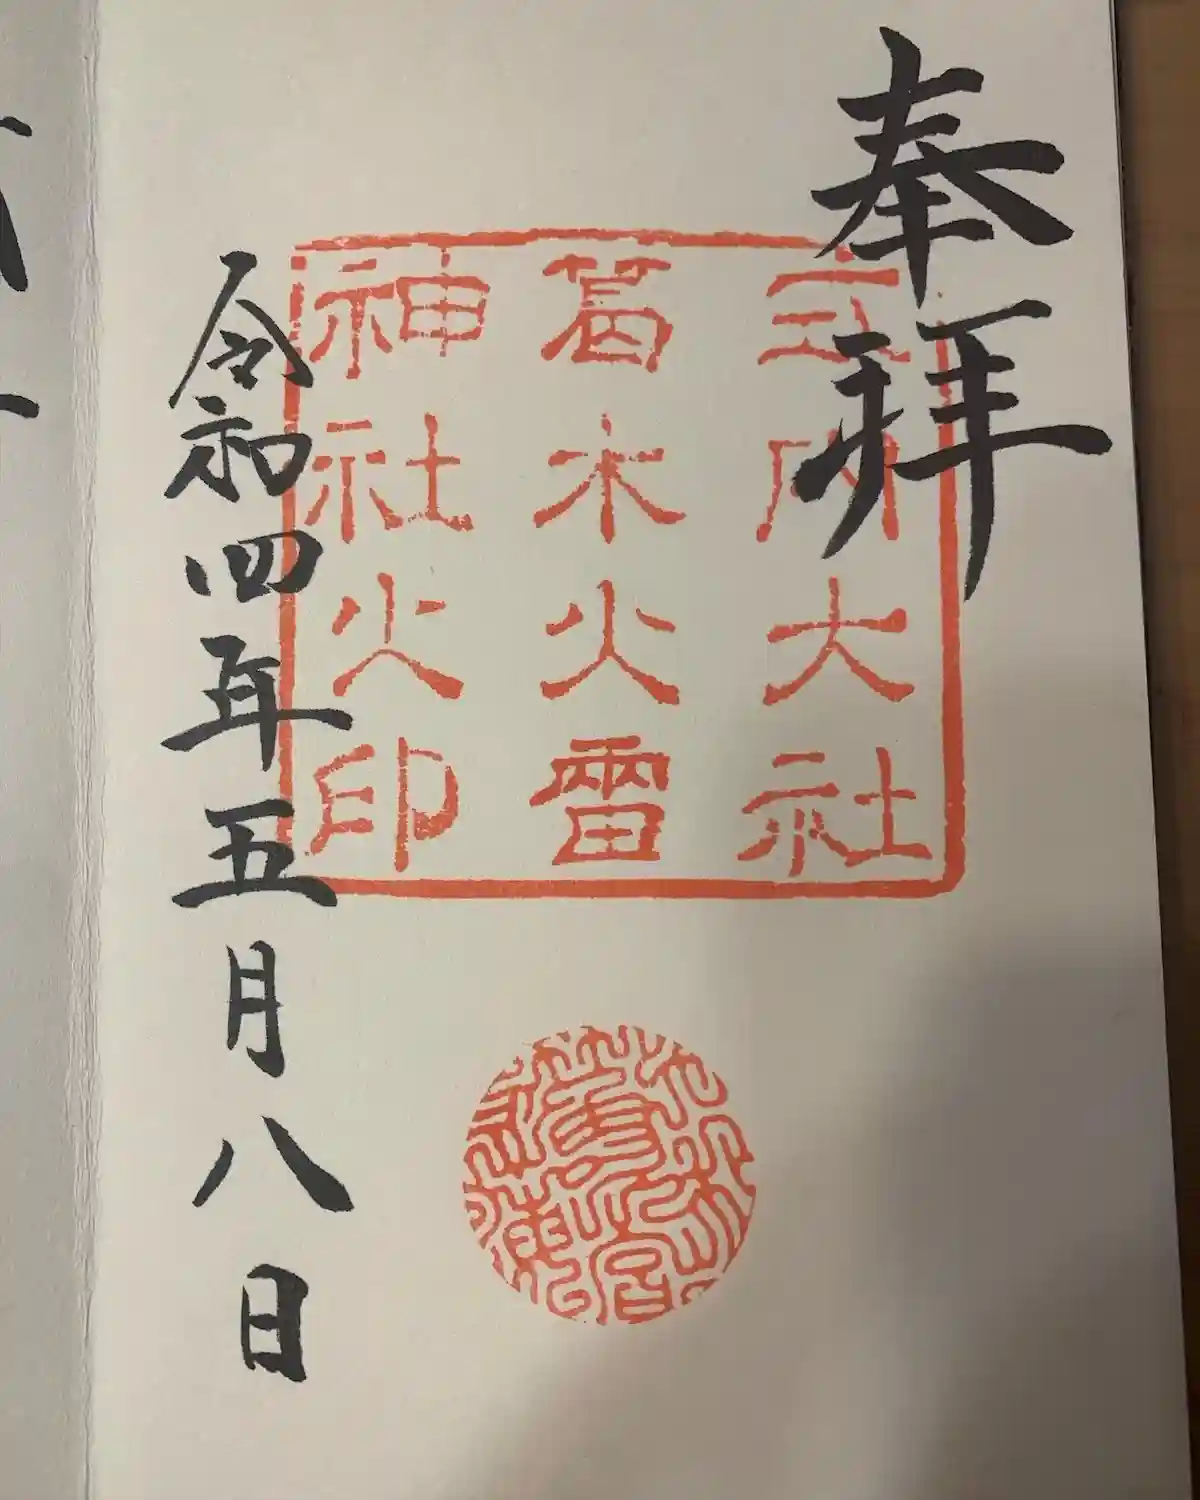 奉拝
式内大社
葛木火雷
神社火印
令和四年五月八日